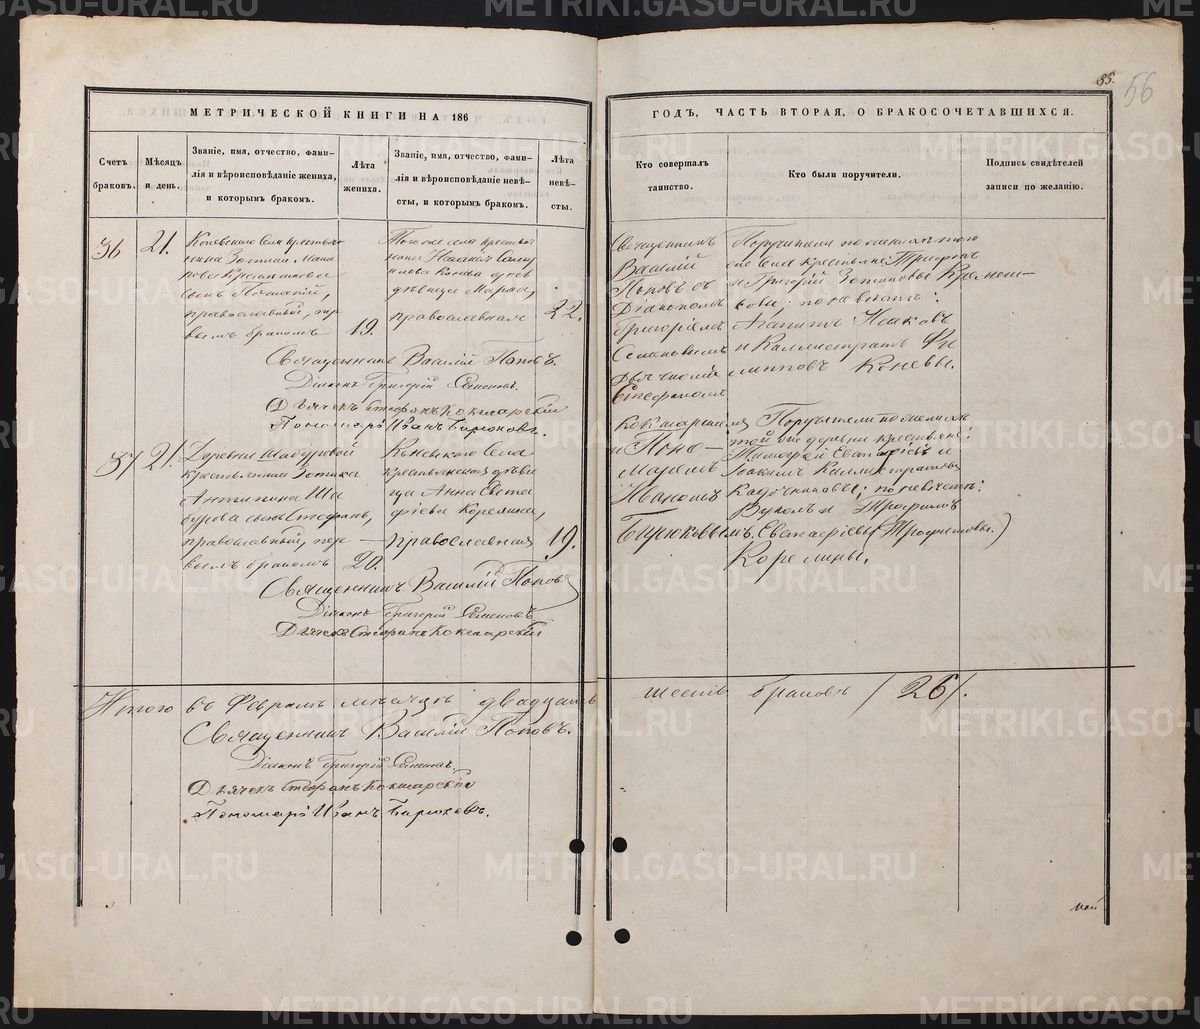 85.
56
МЕТРИЧЕСКОЙ КНИГИ НА 186
ГОДЪ, ЧАСТЬ ВТОРАЯ, О БРАКОСОЧЕТАВШИХСЯ.
Счетъ браковъ.
Мѣсяцъ и день.
Званіе, имя, отчество, фами-
лія и вѣроисповѣданіе жениха,
и которымъ бракомъ.
Лѣта жениха.
Званіе, имя, отчество, фами-
лія и вѣроисповѣданіе невѣ-
сты, и которымъ бракомъ.
Лѣта невѣ-
сты.
Кто совершалъ
таинство.
Кто были поручители.
Подпись свидѣтелей
записи по желанію.
36
21.
Коневскаго Села крестья
нина Зотика
сынъ
православный, пер
вымъ бракомъ
19.
Того же села крестья
нина
дочь
дѣвица Марѳа,
православная
22.
Священникъ Василій Поповъ.
Діаконъ Григорій Семеновъ.
Дьячекъ Стефанъ Кокшарскій
Пономарь Иванъ Бирюковъ.
37
21.
Деревни Шабуровой
крестьянина Зотика
Антипина Ша
бурова сынъ Стефанъ,
православный, пер
вымъ бракомъ
20.
Коневского Села
крестьянская дѣви
ца Анна Евста
фіева Корелина,
православная
19.
Священникъ Василій Поповъ
Діаконъ Григорій Семеновъ
Дьячекъ Стефанъ Кокшарскій
Священникъ
Василій
Поповъ съ
Діакономъ
Григоріемъ
Семеновымъ
Дьячкомъ
Стефаномъ
Кокшарскимъ
и Поно-
маремъ
Иваномъ
Бирюковымъ.
Поручители по женихѣ того
же Села крестьяне Трифонъ
и Григорій Зотиковы
по невѣстѣ:
Агапитъ Исаковъ
и Каллистратъ Фи
липповъ Коневы.
Поручители по женихѣ
той же деревни крестьяне:
Тимофей Евстафіевъ и
Іоакимъ Каллистратовъ
Кадочниковы; по невѣстѣ:
Вуколъ и Трофимъ
Евстафіевы (Трофимовы.)
Корелины.
Итого въ Февралѣ мѣсяцѣ двадцать
шесть браковъ /26/.
Священникъ Василій Поповъ.
Діаконъ Григорій Семеновъ.
Дьячекъ Стефанъ Кокшарскій
Пономарь Иванъ Бирюковъ.
май
METRIKI.GASO-URAL.RU